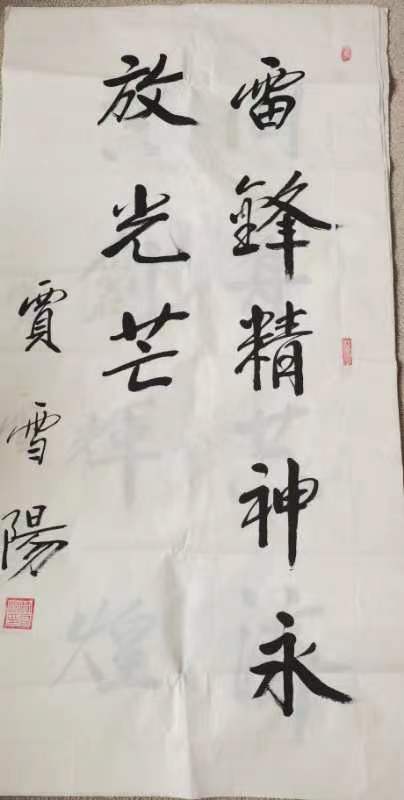 雷鋒精神永
放光芒
賈雪陽